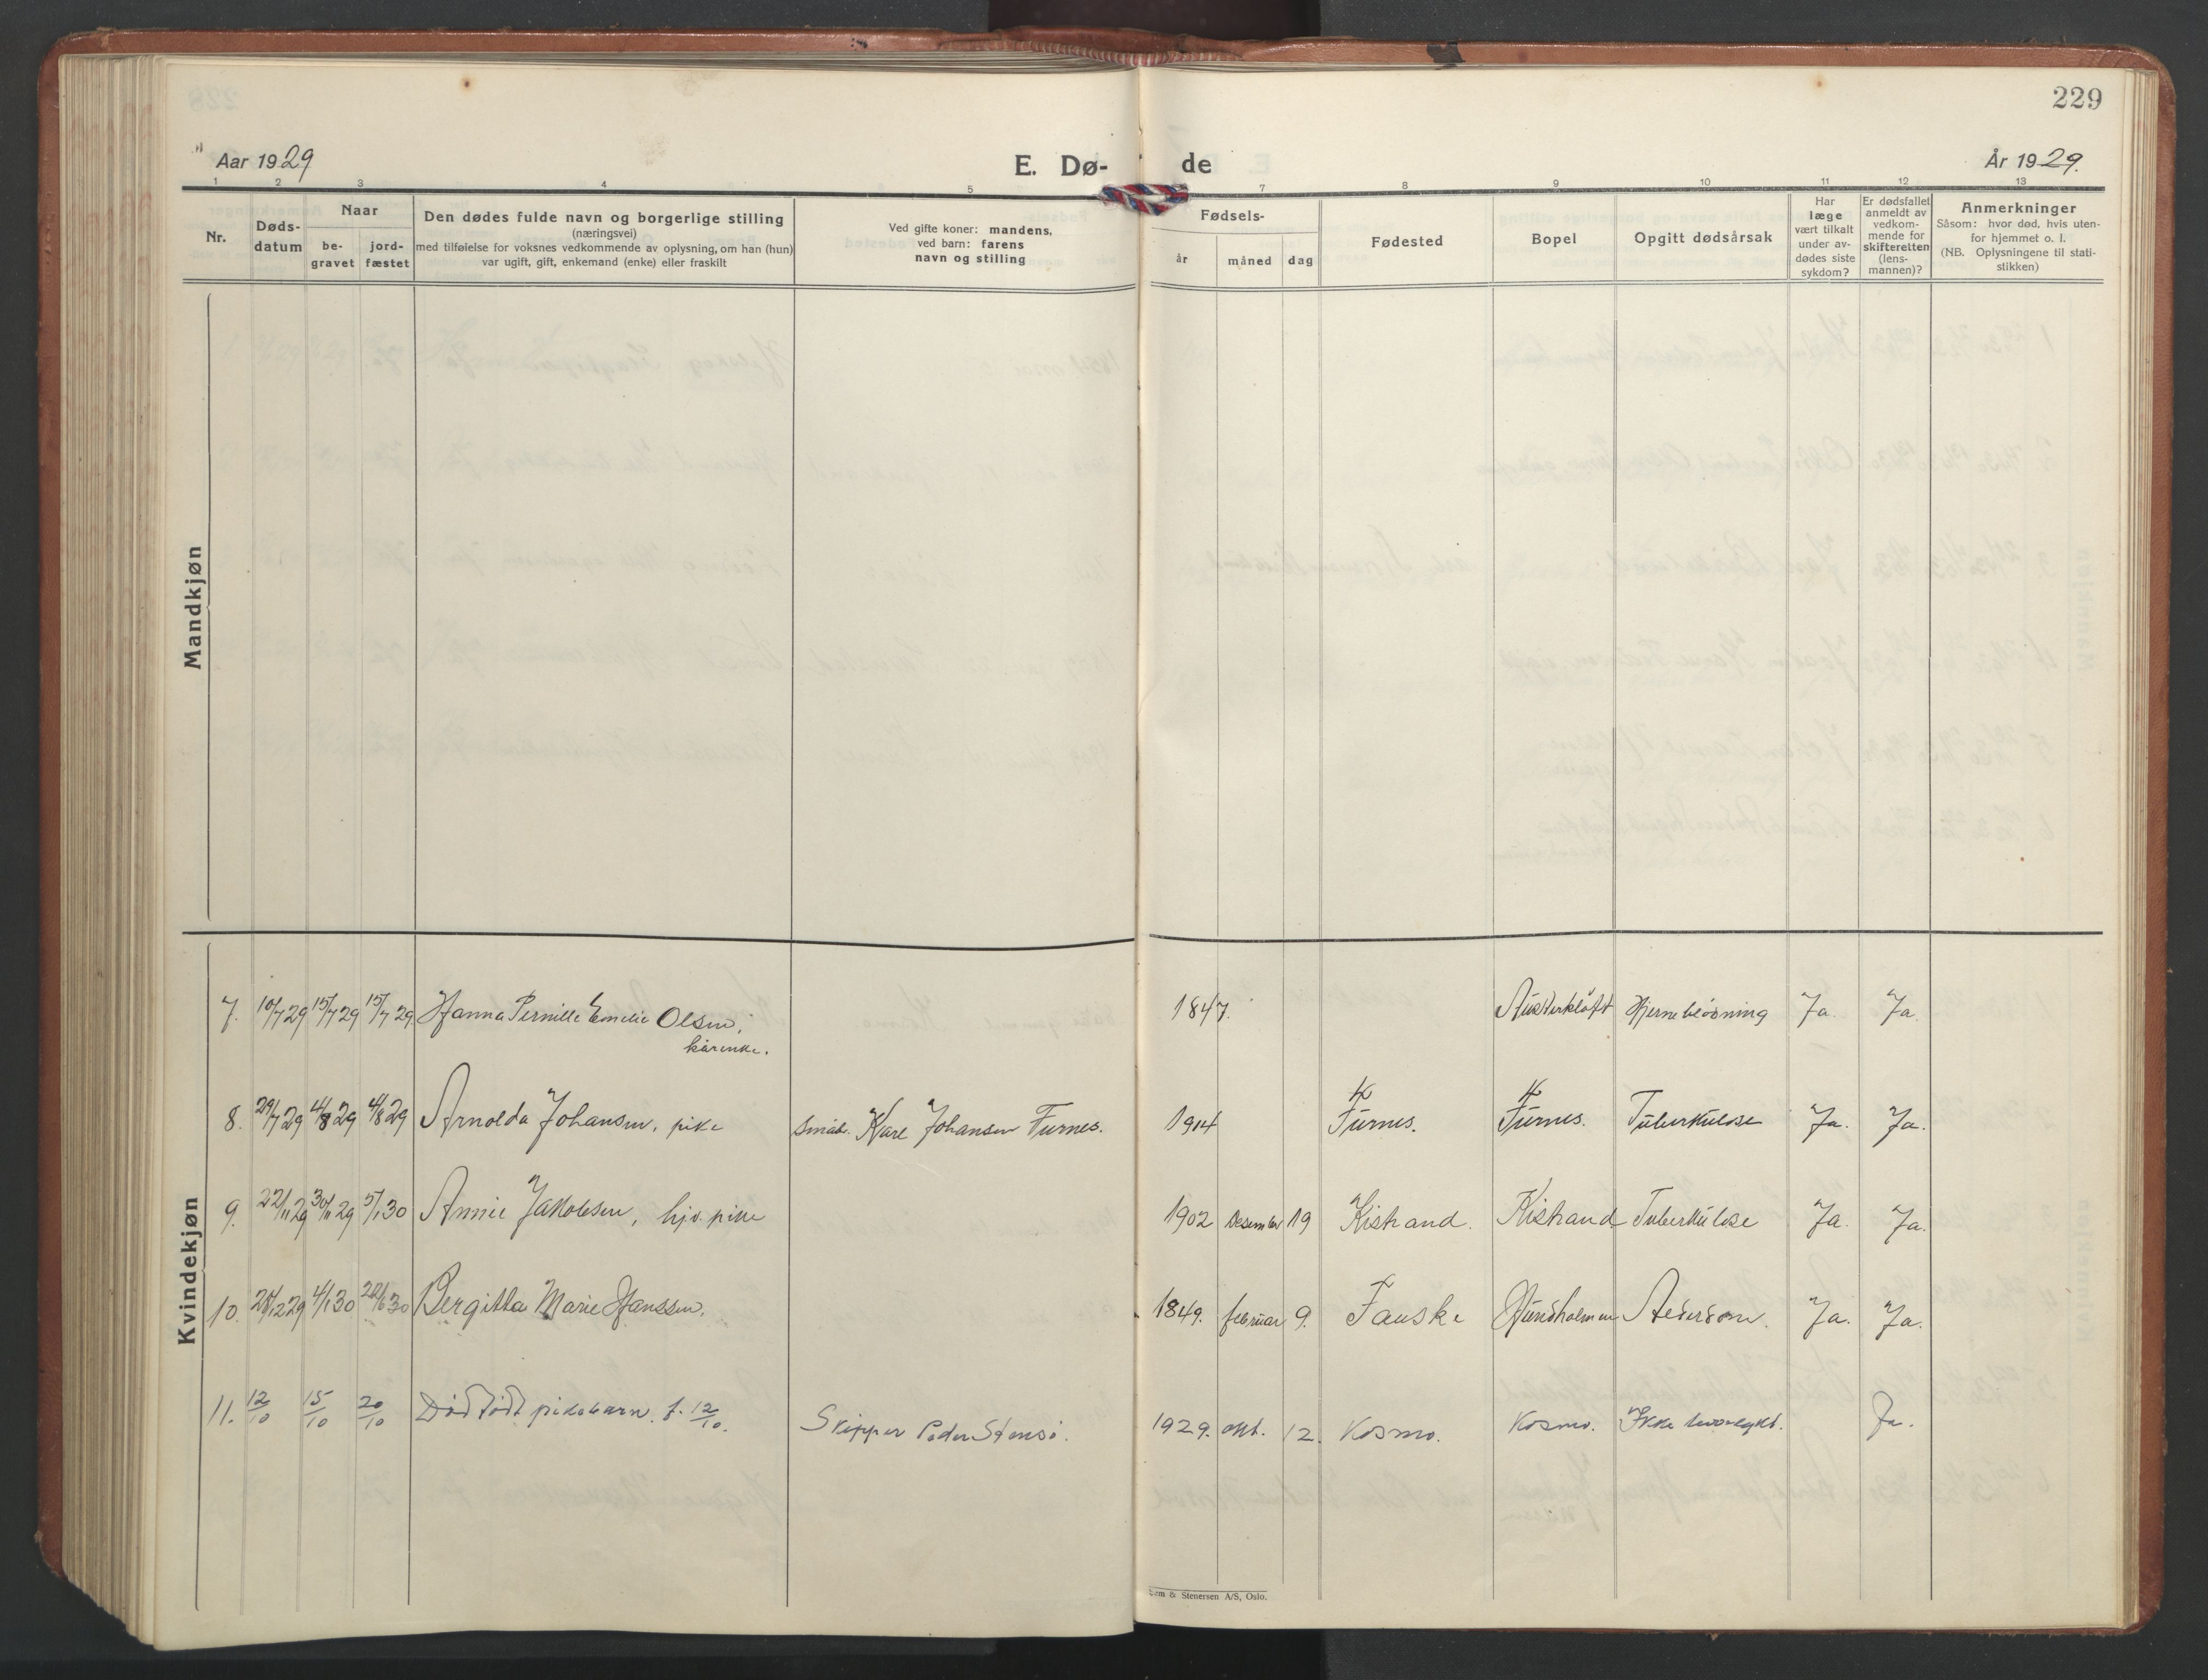 229
Aar 1929
E. Dø- de
År 1929.
1 2 3 4 5 7 8 9 10 11 12 13
Nr.
Døds-
datum
Naar
be-
gravet
jord-
fæstet
Den dødes fulde navn og borgerlige stilling
(næringsvei)
med tilføielse for voksnes vedkommende av oplysning, om han (hun)
var ugift, gift, enkemand (enke) eller fraskilt
Ved gifte koner: mandens,
ved barn: farens
navn og stilling
Fødsels-
år
måned
dag
Fødested
Bopel
Opgitt dødsårsak
Har
læge
vært tilkalt
under av-
dødes siste
sykdom?
Er dødsfallet
anmeldt av
vedkom-
mende for
skifteretten
(lens-
mannen)?
Anmerkninger
Såsom: hvor død, hvis uten-
for hjemmet o. l.
(NB. Oplysningene til stati-
stikken)
Mandkjøn
Kvindekjøn
7. 10/7 29 15/7 29 15/7 29 Hanna Pernille Emelie Olsen, 1847. Austerkløft Hjerneblødning Ja. Ja.
kårenke.
8. 29/7 29 4/8 29 4/8 29 Arnolda Johansen, pike småb. Karl Johansen Furnes. 1914 Furnes. Furnes. Tuberkulose Ja. Ja.
9. 22/11 29 30/11 29 5/1 30 Annie Jakobsen, hj.v. pike 1902 Desember 19 Kistrand. Kistrand Tuberkulose Ja. Ja.
10. 28/12 29 4/1 30 22/6 30 Bergitta Marie Hanssen. 1849. februar 9. Fauske Hundholmen Alderdom. Ja. Ja.
11. 12/10 15/10 20/10 Dødfødt pikebarn f. 12/10. Skipper Peder Stensø. 1929. okt. 12. Kosmo. Kosmo. Ikke Ja.
& Stenersen A/S, Oslo.